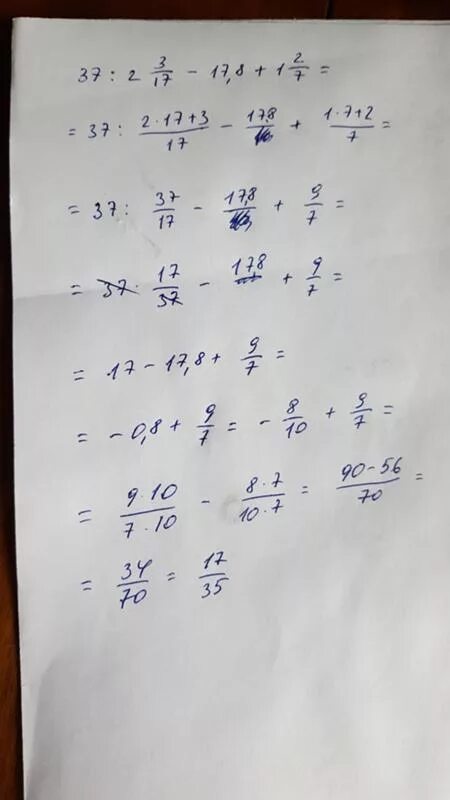 37 : 2 3/17 - 17,8 + 1 2/7 =
= 37 : (2·17+3)/17 - 17,8 + (1·7+2)/7 =
= 37 : 37/17 - 17,8 + 9/7 =
= 37 · 17/37 - 17,8 + 9/7 =
= 17 - 17,8 + 9/7 =
= -0,8 + 9/7 = - 8/10 + 9/7 =
= (9·10)/(7·10) - (8·7)/(10·7) = (90-56)/70 =
= 34/70 = 17/35